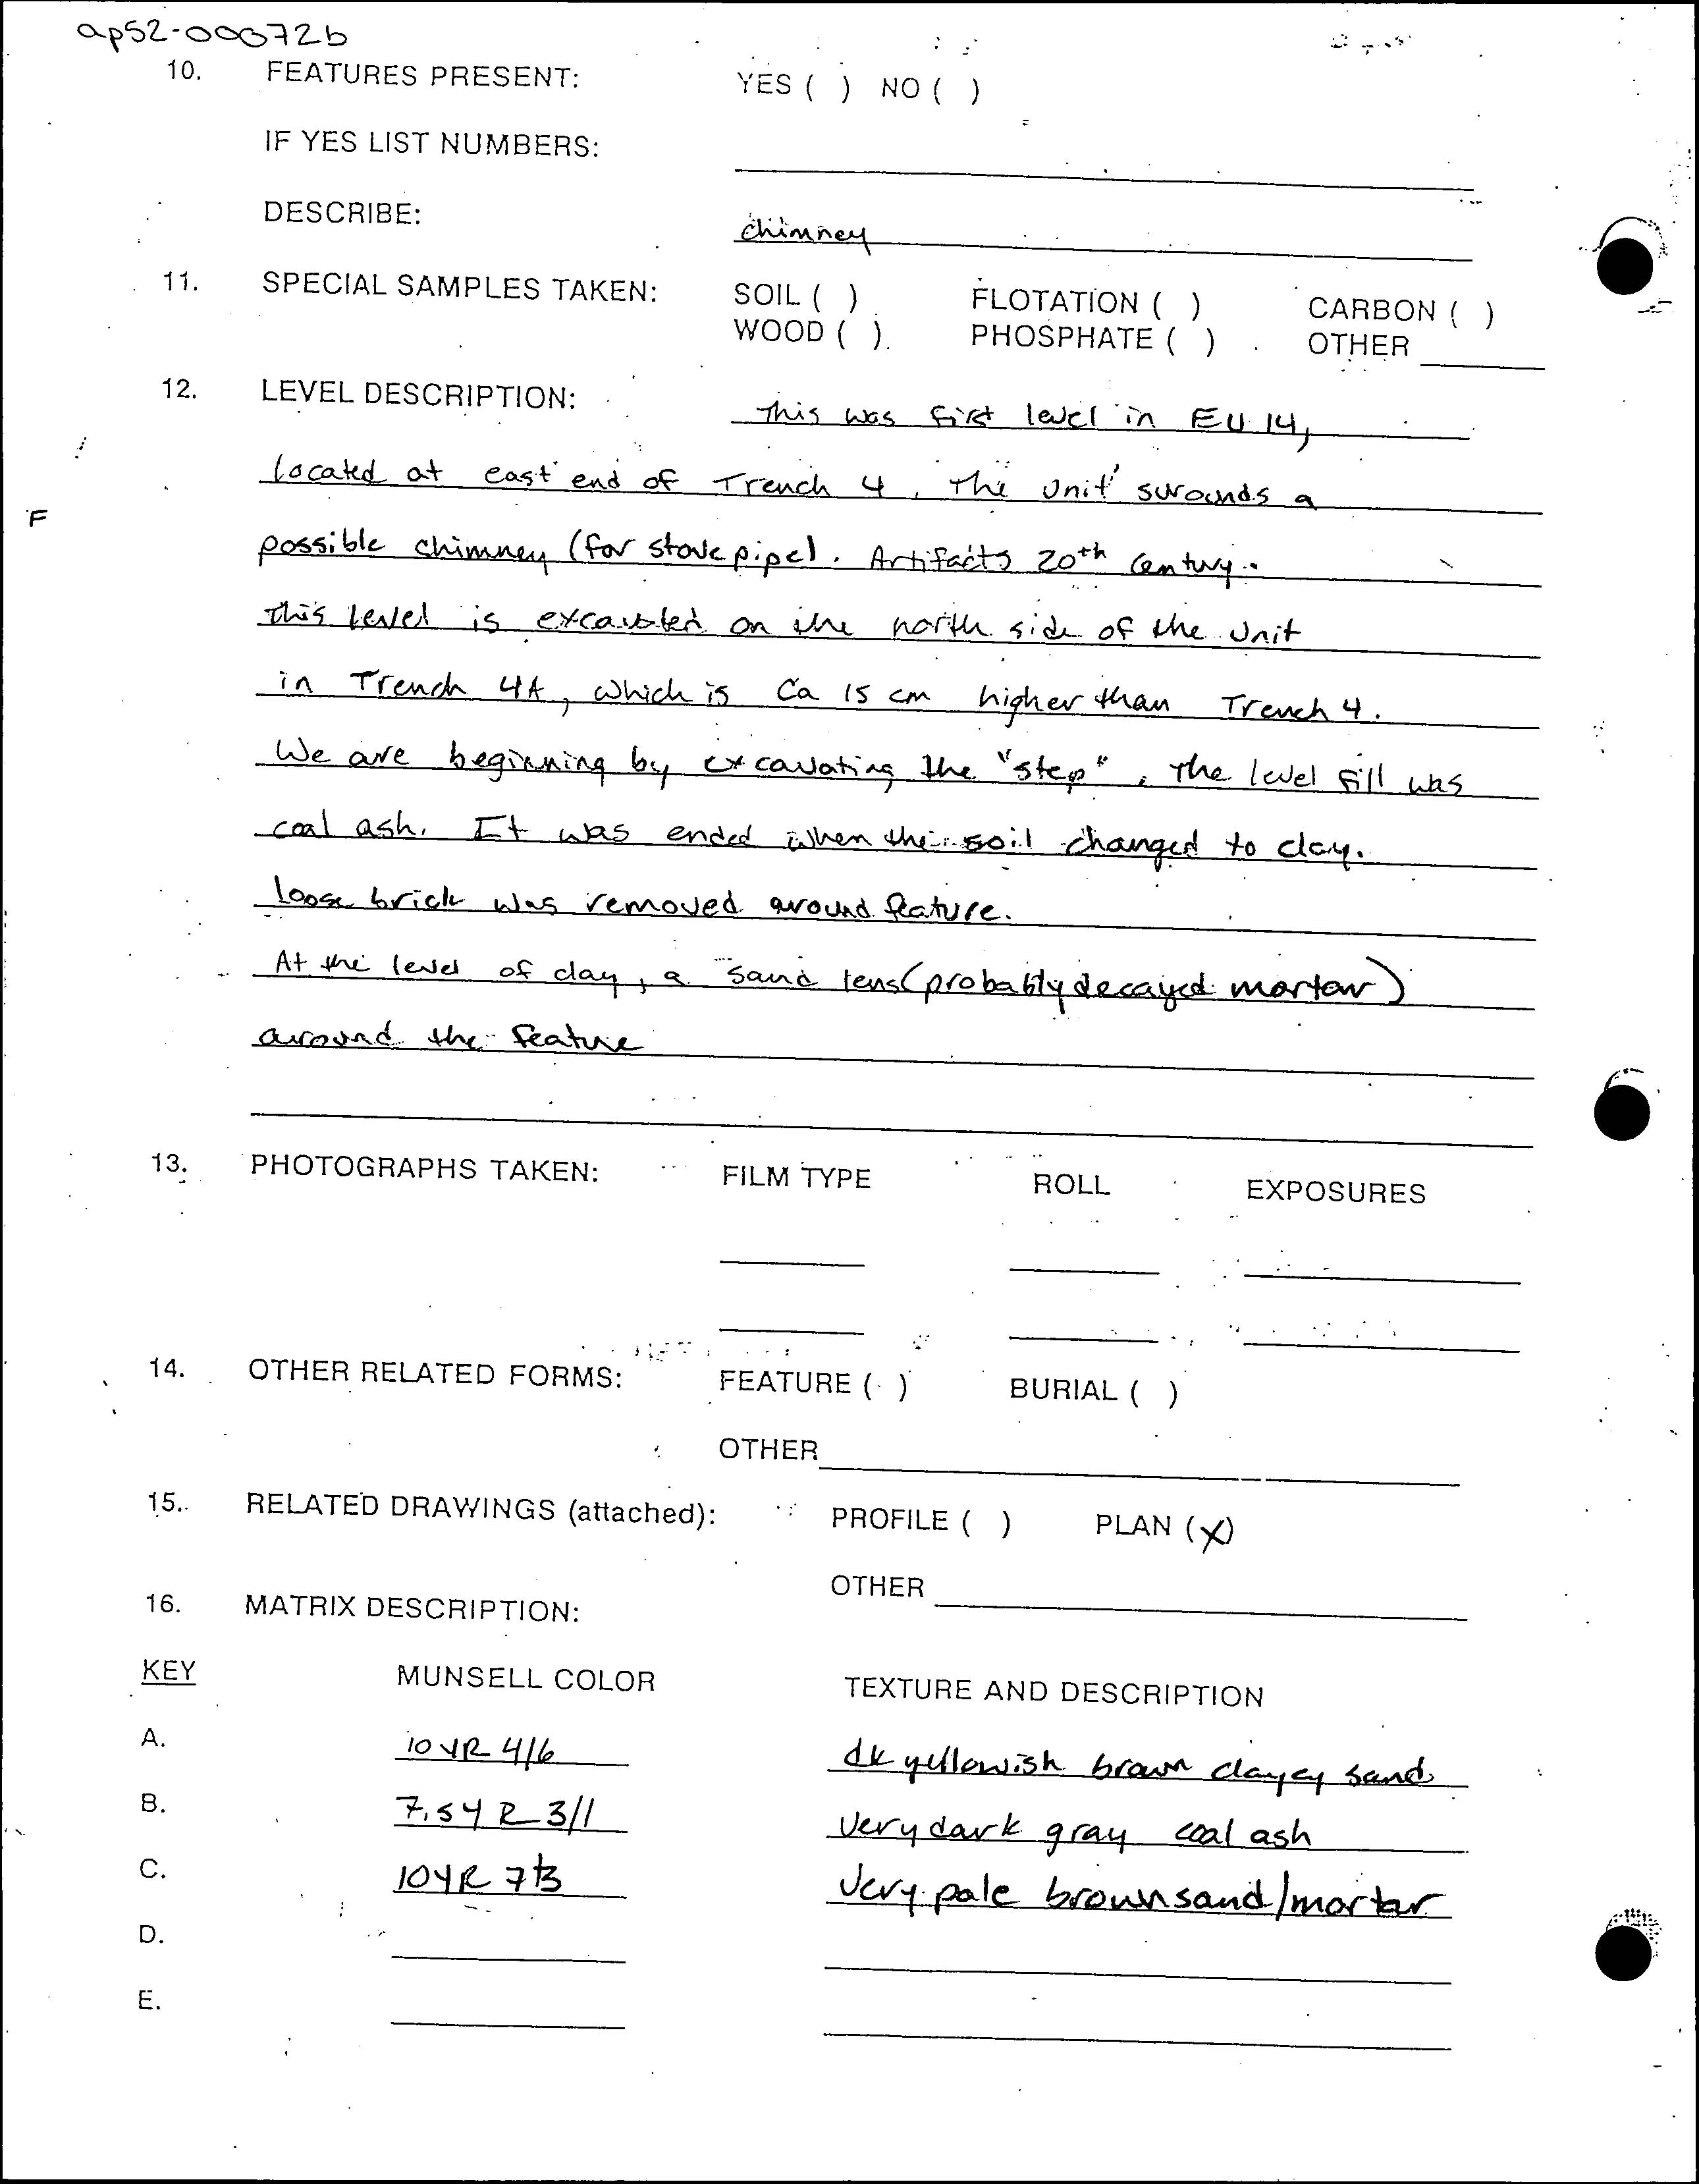 ap52-00072b
10. FEATURES PRESENT: YES ( ) NO ( )
IF YES LIST NUMBERS:
DESCRIBE: chimney
11. SPECIAL SAMPLES TAKEN: SOIL ( ) FLOTATION ( ) CARBON ( )
WOOD ( ) PHOSPHATE ( ) OTHER
12. LEVEL DESCRIPTION: This was first level in EU 14,
located at east end of Trench 4. The Unit surounds a
F
possible chimney (for stove pipe). Artifacts 20th Century.
This level is excavated on the north side of the Unit
in Trench 4A, which is Ca 15 cm higher than Trench 4.
We are beginning by excavating the "step". The level fill was
coal ash. It was ended when the soil changed to clay.
loose brick was removed around feature.
At the level of clay, a sand lens (probably decayed mortar)
around the feature
13. PHOTOGRAPHS TAKEN: FILM TYPE ROLL EXPOSURES
14. OTHER RELATED FORMS: FEATURE ( ) BURIAL ( )
OTHER
15. RELATED DRAWINGS (attached): PROFILE ( ) PLAN (X)
OTHER
16. MATRIX DESCRIPTION:
KEY MUNSELL COLOR TEXTURE AND DESCRIPTION
A. 10YR 4/6 dk yellowish brown clayey sand
B. 7.5YR 3/1 Very dark gray coal ash
C. 10YR 7/3 Very pale brown sand/mortar
D.
E.